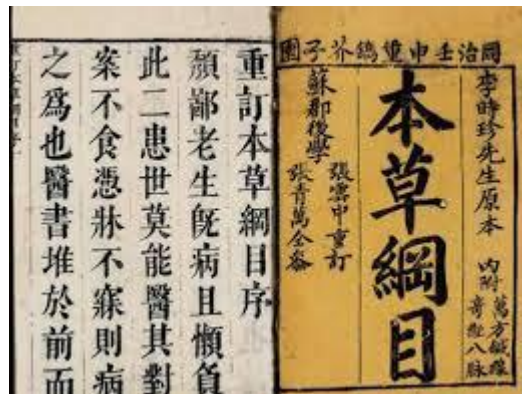 同治壬申重鐫芥子園
李時珍先生原本
內附萬方鍼線
奇經八脉
本草綱目
張雲中重訂
張青萬全參
蘇郡後學
重訂本草綱目序
頹鄙老生旣病且懶負
此二患世莫能醫其對
案不食憑牀不寐則病
之爲也醫書堆於前而